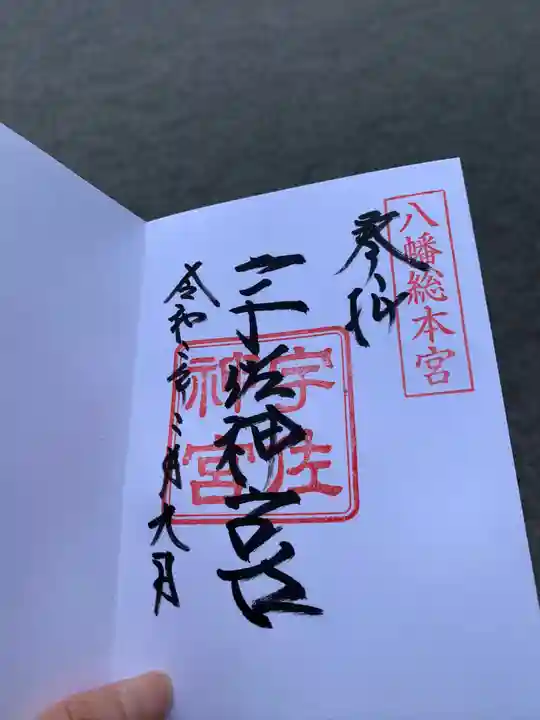 八幡総本宮
奉拝
宇佐神宮
宇佐
神宮
令和三年二月九日